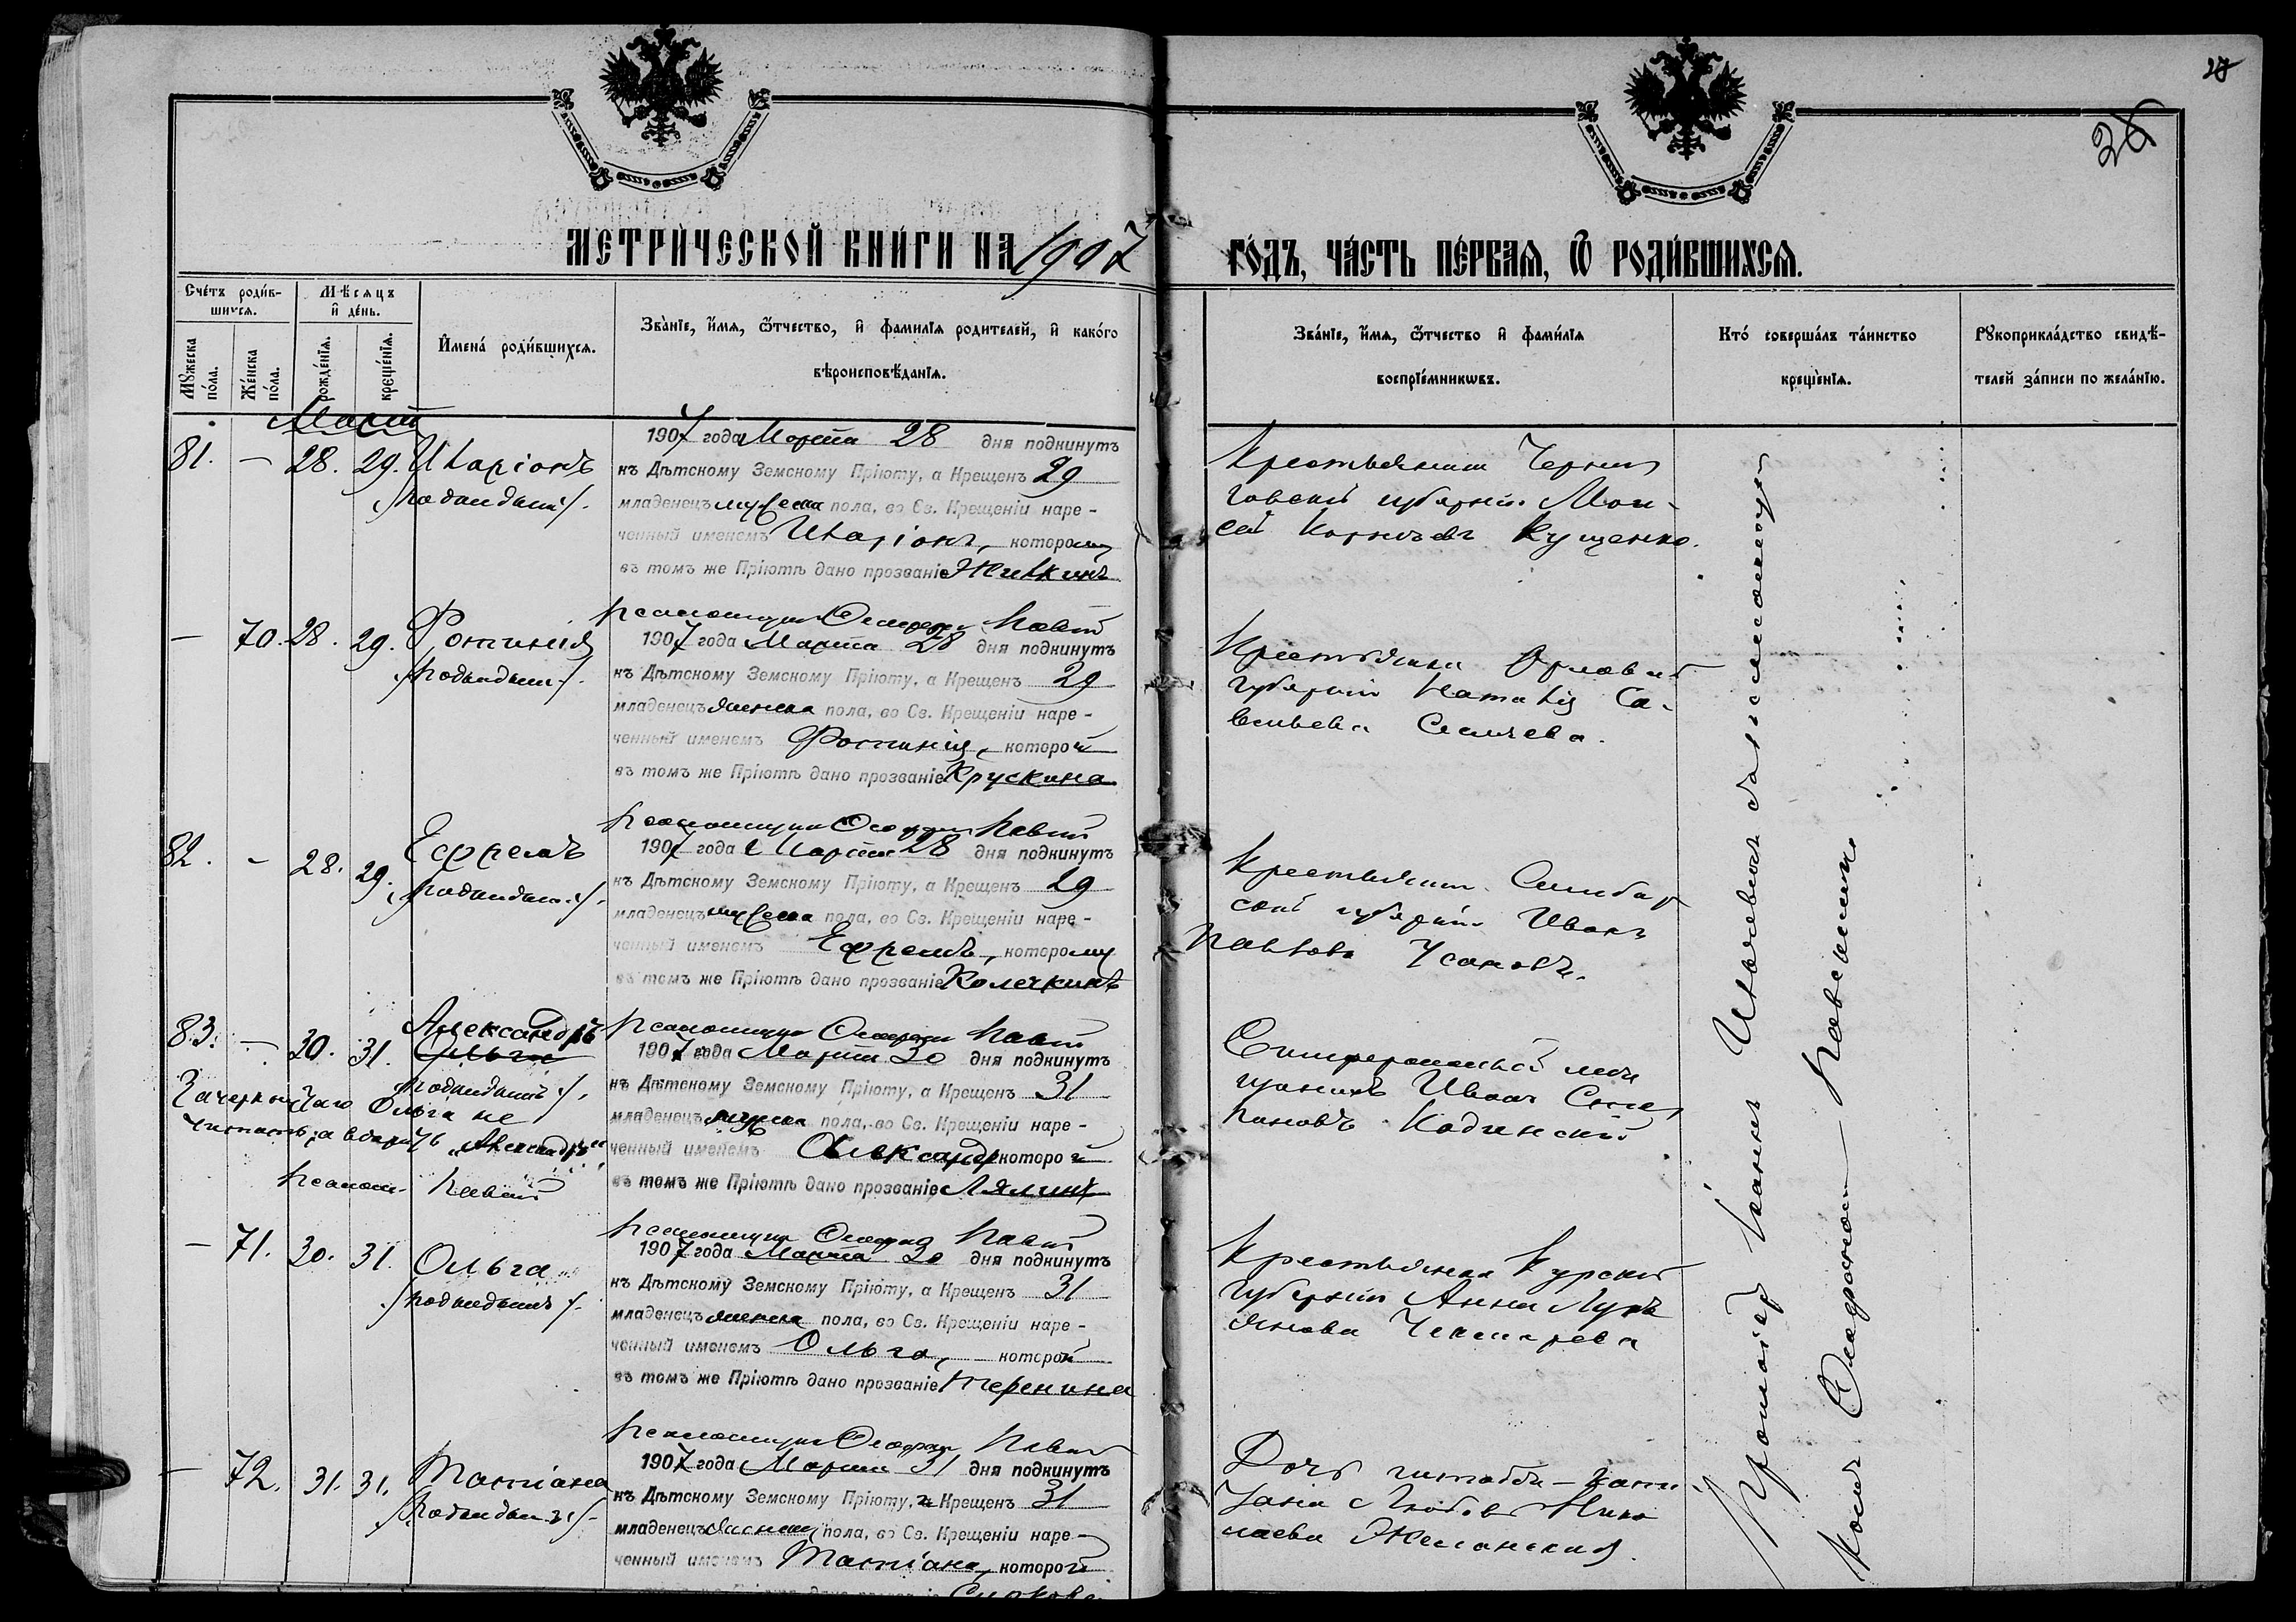 28
28
МЕТРИЧЕСКОЙ КНИГИ НА 1907 ГОДЪ, ЧАСТЬ ПЕРВАЯ, Ѿ РОДИВШИХСЯ.
Счетъ родив-
шихся.
Мѣсяцъ
и день.
Мужеска
пола.
Женска
пола.
рожденїя.
крещенїя.
Имена родившихся.
Званїе, имя, ѿтчество, и фамилїя родителей, и какого
вѣроисповѣданїя.
Званїе, имя, ѿтчество и фамилїя
воспрїемникѡвъ.
Кто совершалъ таинство
крещенїя.
Рукоприкладство свидѣ-
телей записи по желанїю.
Мартъ
81. — 28. 29. Иларіонъ
/подкидышъ/.
1907 года Марта 28 дня подкинутъ
къ Дѣтскому Земскому Пріюту, а Крещенъ 29
младенецъ мужеска пола, во Св. Крещеніи наре-
ченный именемъ Иларіонъ, которому
въ томъ же Пріютѣ дано прозваніе Жилкинъ
Крестьянинъ Черни
говской губерніи Мои-
сей Корнѣевъ Кущенко.
— 70. 28. 29. Фотинія
/подкидышъ/.
Псаломщикъ
1907 года Марта 28 дня подкинутъ
къ Дѣтскому Земскому Пріюту, а Крещенъ 29
младенецъ женска пола, во Св. Крещеніи наре-
ченный именемъ Фотинія, которой
въ томъ же Пріютѣ дано прозваніе Крускина
Крестьянка Орловской
губерніи Наталія Са-
вельева
82. - 28. 29. Ефремъ
/подкидышъ/.
Псаломщикъ
1907 года Марта 28 дня подкинутъ
къ Дѣтскому Земскому Пріюту, а Крещенъ 29
младенецъ мужеска пола, во Св. Крещеніи наре-
ченный именемъ Ефремъ, которому
въ томъ же Пріютѣ дано прозваніе Колечкинъ
Крестьянинъ Симбир
ской губерніи Иванъ
Павловъ Усановъ.
83. — 30. 31. Александръ
Ольга
/подкидышъ/.
Зачеркнутаго Ольга не
читать, а вѣрить „Александръ“
Псаломщ.
Псаломщикъ
1907 года Марта 30 дня подкинутъ
къ Дѣтскому Земскому Пріюту, а Крещенъ 31
младенецъ мужска пола, во Св. Крещеніи наре-
ченный именемъ Александръ которой
въ томъ же Пріютѣ дано прозваніе Лялинъ
Симферопольскій мѣщ
анинъ Иванъ Сте
пановъ Кодинскій
— 71. 30. 31. Ольга
/подкидышъ/.
Псаломщикъ
1907 года Марта 30 дня подкинутъ
къ Дѣтскому Земскому Пріюту, а Крещенъ 31
младенецъ женска пола, во Св. Крещеніи наре-
ченный именемъ Ольга, которой
въ томъ же Пріютѣ дано прозваніе Теренина
Крестьянка Курской
губерніи Анна Лукь
янова Чекмарева
— 72. 31. 31. Татіана
/подкидышъ/.
Псаломщикъ
1907 года Марта 31 дня подкинутъ
къ Дѣтскому Земскому Пріюту, а Крещенъ 31
младенецъ женска пола, во Св. Крещеніи наре-
ченный именемъ Татіана, которой
Дочь штабсъ-капи
тана Любовь Нико
лаева Желанская.
Протоіерей Іоаннъ